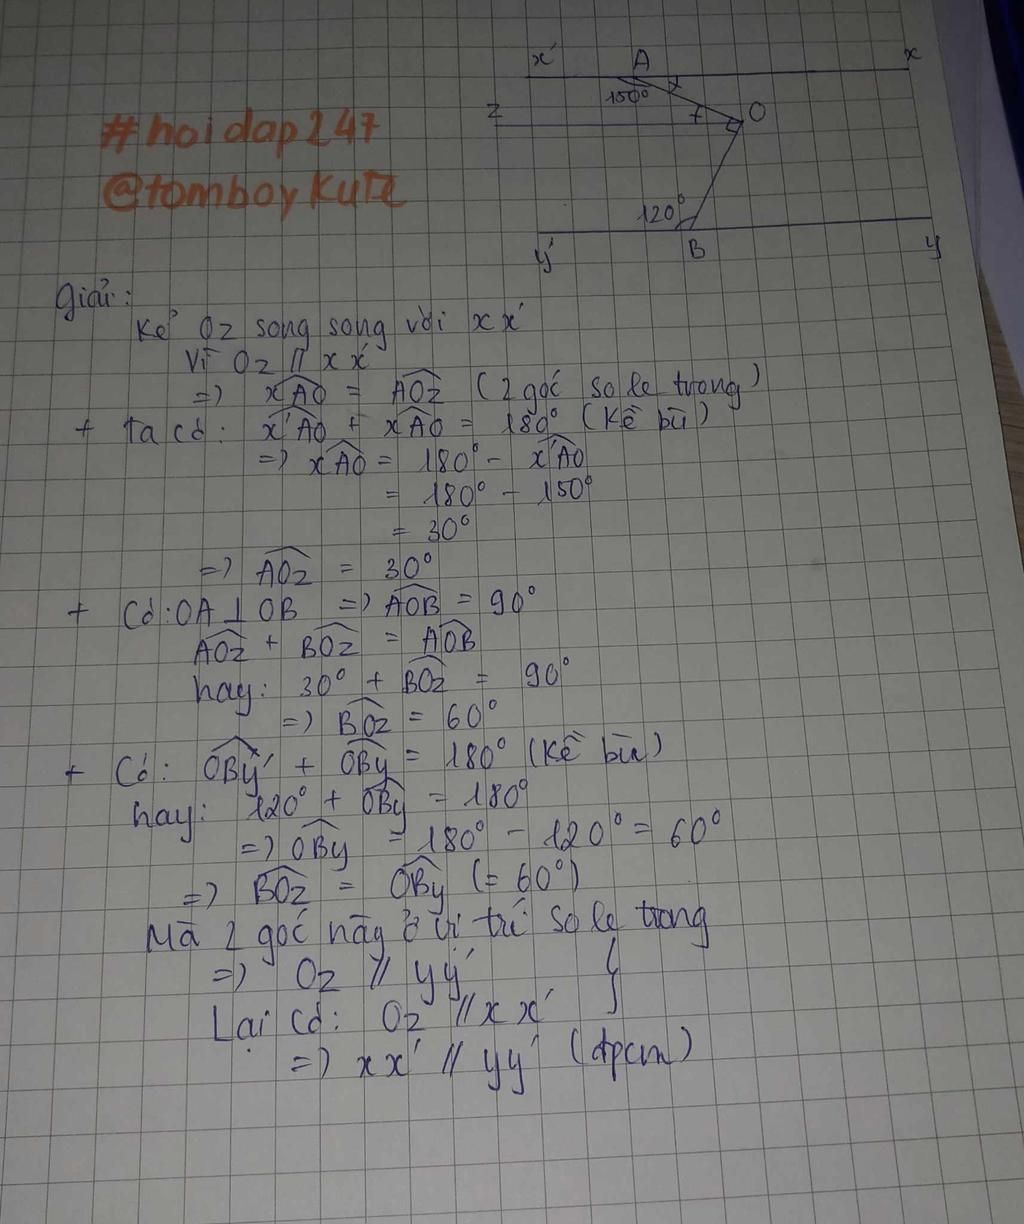 #hoidap247
@tomboykute
x' A x
150°
z O
120°
y' B y
Giải:
Kẻ Oz song song với xx'
Vì Oz // xx'
=> xAO = AOz (2 góc so le trong)
+ Ta có: x'AO + xAO = 180° (Kề bù)
=> xAO = 180° - x'AO
= 180° - 150°
= 30°
=> AOz = 30°
+ Có: OA ⊥ OB => AOB = 90°
AOz + BOz = AOB
hay: 30° + BOz = 90°
=> BOz = 60°
+ Có: OBy' + OBy = 180° (Kề bù)
hay: 120° + OBy = 180°
=> OBy = 180° - 120° = 60°
=> BOz = OBy (= 60°)
Mà 2 góc này ở vị trí so le trong
=> Oz // yy'
Lại có: Oz // xx'
=> xx' // yy' (đpcm)